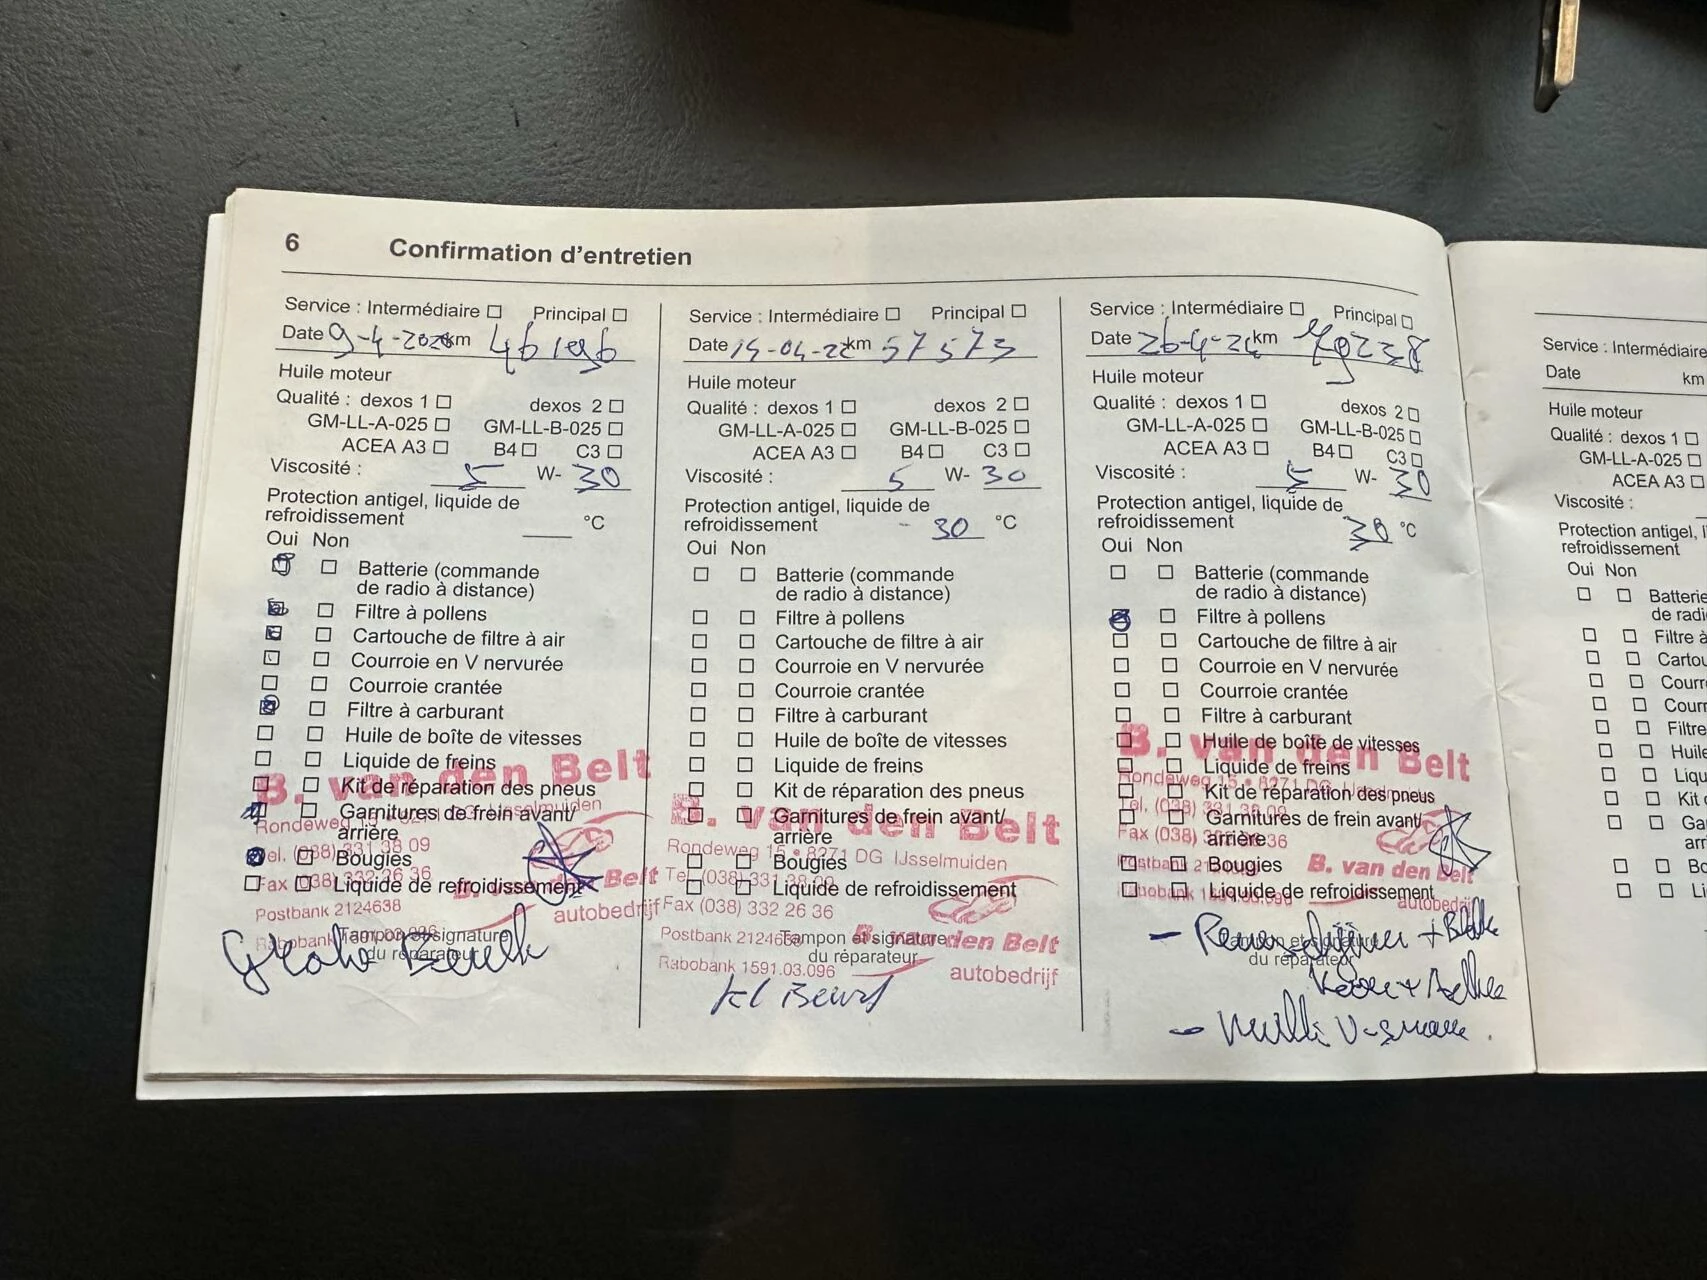 6 Confirmation d'entretien
Service : Intermédiaire □ Principal □
Date 9-4-2020 km
Huile moteur
Qualité : dexos 1 □ dexos 2 □
GM-LL-A-025 □ GM-LL-B-025 □
ACEA A3 □ B4 □ C3 □
Viscosité : 5 W- 30
Protection antigel, liquide de
refroidissement °C
Oui Non
Batterie (commande
de radio à distance)
Filtre à pollens
Cartouche de filtre à air
Courroie en V nervurée
Courroie crantée
Filtre à carburant
Huile de boîte de vitesses
Liquide de freins
Kit de réparation des pneus
Garnitures de frein avant/
arrière
Bougies
Liquide de refroidissement
Tampon et signature
du réparateur
B. van den Belt
Rondeweg 15 • 8271 DG IJsselmuiden
Tel. (038) 331 38 09
Fax (038) 332 26 36
Postbank 2124638
Rabobank 1591.03.096
B. van den Belt
autobedrijf
Service : Intermédiaire □ Principal □
Date 14-04-22 km 57573
Huile moteur
Qualité : dexos 1 □ dexos 2 □
GM-LL-A-025 □ GM-LL-B-025 □
ACEA A3 □ B4 □ C3 □
Viscosité : 5 W- 30
Protection antigel, liquide de
refroidissement - 30 °C
Oui Non
Batterie (commande
de radio à distance)
Filtre à pollens
Cartouche de filtre à air
Courroie en V nervurée
Courroie crantée
Filtre à carburant
Huile de boîte de vitesses
Liquide de freins
Kit de réparation des pneus
Garnitures de frein avant/
arrière
Bougies
Liquide de refroidissement
Tampon et signature
du réparateur
B. van den Belt
Rondeweg 15 • 8271 DG IJsselmuiden
Tel. (038) 331 38 09
Fax (038) 332 26 36
Postbank 2124638
Rabobank 1591.03.096
B. van den Belt
autobedrijf
Kl Beurt
Service : Intermédiaire □ Principal □
Date 26-4-24 km 70238
Huile moteur
Qualité : dexos 1 □ dexos 2 □
GM-LL-A-025 □ GM-LL-B-025 □
ACEA A3 □ B4 □ C3 □
Viscosité : 5 W- 30
Protection antigel, liquide de
refroidissement 30 °C
Oui Non
Batterie (commande
de radio à distance)
Filtre à pollens
Cartouche de filtre à air
Courroie en V nervurée
Courroie crantée
Filtre à carburant
Huile de boîte de vitesses
Liquide de freins
Kit de réparation des pneus
Garnitures de frein avant/
arrière
Bougies
Liquide de refroidissement
Tampon et signature
du réparateur
B. van den Belt
Rondeweg 15 • 8271 DG
Tel. (038) 331 38 09
Fax (038)
Postbank
Rabobank
B. van den Belt
autobedrijf
Service : Intermédiaire
Date km
Huile moteur
Qualité : dexos 1 □
GM-LL-A-025 □
ACEA A3 □
Viscosité :
Protection antigel, l
refroidissement
Oui Non
Batterie
de radi
Filtre à
Cartou
Courr
Courr
Filtre
Huile
Liqu
Kit
Ga
arr
Bo
Li